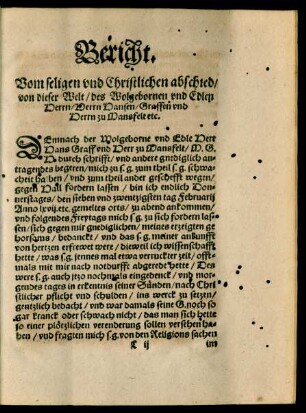 Bericht.
Vom seligen vnd Christlichen abschied/
von dieser Welt/ des Wolgebornen vnd Edlen
Herrn/ Herrn Hansen/ Graffen vnd
Herrn zu Mansfelt etc.
DEmnach der Wolgeborne vnd Edle Herr
Hans Graff vnd Herr zu Mansfelt/ M. G.
H. durch schrifft/ vnd andere gnediglich an-
tragendes begeren/ mich zu s.g. zum theil s.g. schwa-
cheit halben/ vnd zum theil ander gescheffte wegen/
gegen Hall fordern lassen/ bin ich endlich Don-
nerstages/ den sieben vnd zwentzigsten tag Februarij
Anno lxvij etc. gemeltes orts/ zu abend ankommen/
vnd folgendes Freytags mich s.g. zu sich fordern las-
sen/ sich gegen mir gnediglichen/ meines erzeigten ge-
horsams/ bedanckt/ vnd das s.g. meiner ankunfft
von hertzen erfrewet were/ dieweil ich wissenschafft
hette/ was s.g. jennes mal etwa verruckter zeit/ offt-
mals mit mir nach notdurfft abgeredt hette/ Des
were s.g. auch jtzo nochmals eingedenck/ vnd mor-
gendes tages in erkentnis seiner Sünden/ nach Chri
stlicher pflicht vnd schulden/ ins werck zu setzen/
gentzlich bedacht/ vnd war damals seine G. noch so
gar kranck oder schwach nicht/ das man sich hette
so einer plötzlichen verenderung sollen versehen ha-
ben/ vnd fragten mich s.g. von den Religions sachen
ij im